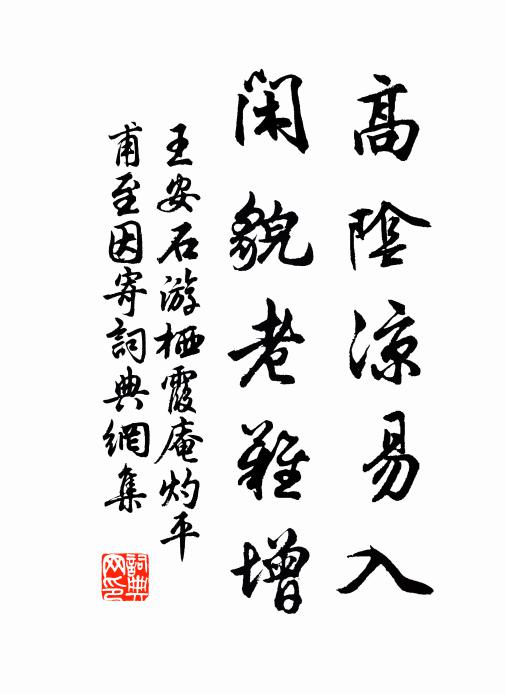 高陰涼易入
閑貌老難增
王安石游栖霞庵灼平
甫至因寄詞典網集
詞典
网印